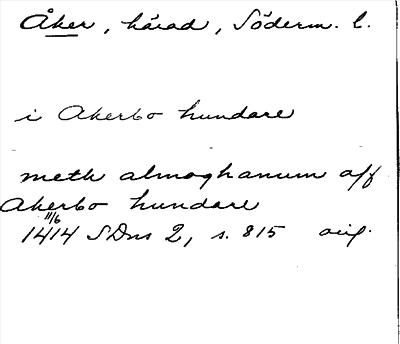 Åker, härad, Söderm. l.
i Akerbo hundare
meth almoghanum aff
Akerbo hundare
11/6
1414 SDns 2, s. 815 orig.